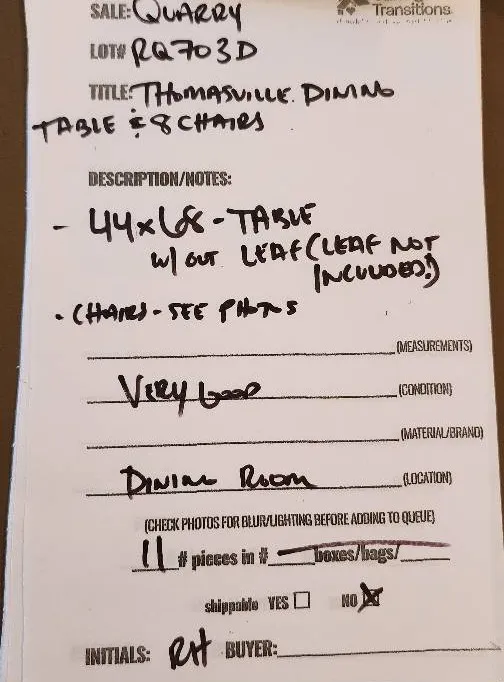 SALE: QUARRY
Transitions
LOT# RQ703D
TITLE: THOMASVILLE DINING
TABLE & 8 CHAIRS
DESCRIPTION/NOTES:
- 44x68 - TABLE
w/ OUT LEAF (LEAF NOT
INCLUDED!)
• CHAIRS - SEE PHOTOS
(MEASUREMENTS)
VERY GOOD (CONDITION)
(MATERIAL/BRAND)
DINING ROOM (LOCATION)
(CHECK PHOTOS FOR BLUR/LIGHTING BEFORE ADDING TO QUEUE)
11 # pieces in # boxes/bags/
shippable YES ☐ NO ☒
INITIALS: RH BUYER: